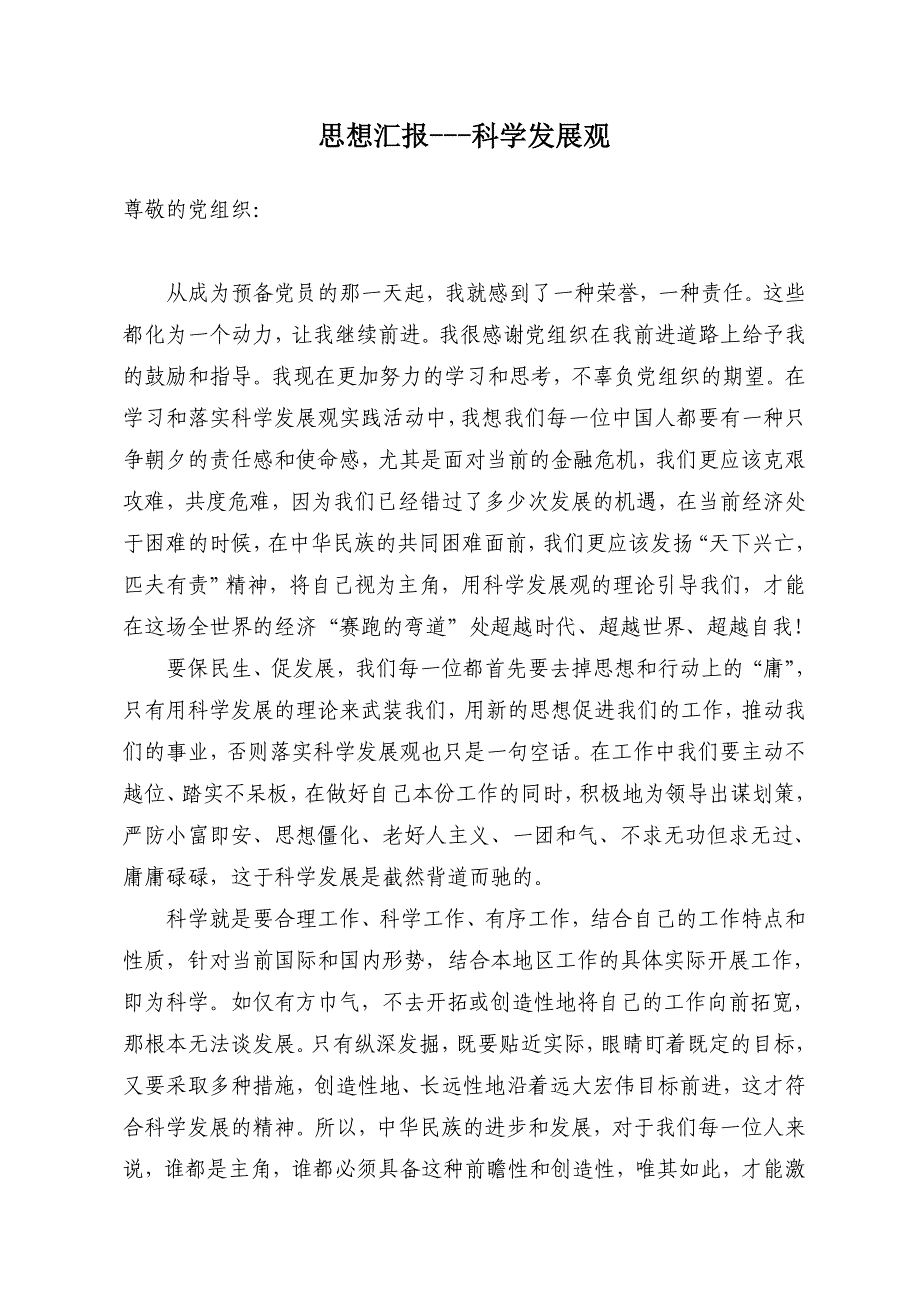 思想汇报---科学发展观
尊敬的党组织：
从成为预备党员的那一天起，我就感到了一种荣誉，一种责任。这些
都化为一个动力，让我继续前进。我很感谢党组织在我前进道路上给予我
的鼓励和指导。我现在更加努力的学习和思考，不辜负党组织的期望。在
学习和落实科学发展观实践活动中，我想我们每一位中国人都要有一种只
争朝夕的责任感和使命感，尤其是面对当前的金融危机，我们更应该克艰
攻难，共度危难，因为我们已经错过了多少次发展的机遇，在当前经济处
于困难的时候，在中华民族的共同困难面前，我们更应该发扬“天下兴亡，
匹夫有责”精神，将自己视为主角，用科学发展观的理论引导我们，才能
在这场全世界的经济“赛跑的弯道”处超越时代、超越世界、超越自我！
要保民生、促发展，我们每一位都首先要去掉思想和行动上的“庸”，
只有用科学发展的理论来武装我们，用新的思想促进我们的工作，推动我
们的事业，否则落实科学发展观也只是一句空话。在工作中我们要主动不
越位、踏实不呆板，在做好自己本份工作的同时，积极地为领导出谋划策，
严防小富即安、思想僵化、老好人主义、一团和气、不求无功但求无过、
庸庸碌碌，这于科学发展是截然背道而驰的。
科学就是要合理工作、科学工作、有序工作，结合自己的工作特点和
性质，针对当前国际和国内形势，结合本地区工作的具体实际开展工作，
即为科学。如仅有方巾气，不去开拓或创造性地将自己的工作向前拓宽，
那根本无法谈发展。只有纵深发掘，既要贴近实际，眼睛盯着既定的目标，
又要采取多种措施，创造性地、长远性地沿着远大宏伟目标前进，这才符
合科学发展的精神。所以，中华民族的进步和发展，对于我们每一位人来
说，谁都是主角，谁都必须具备这种前瞻性和创造性，唯其如此，才能激